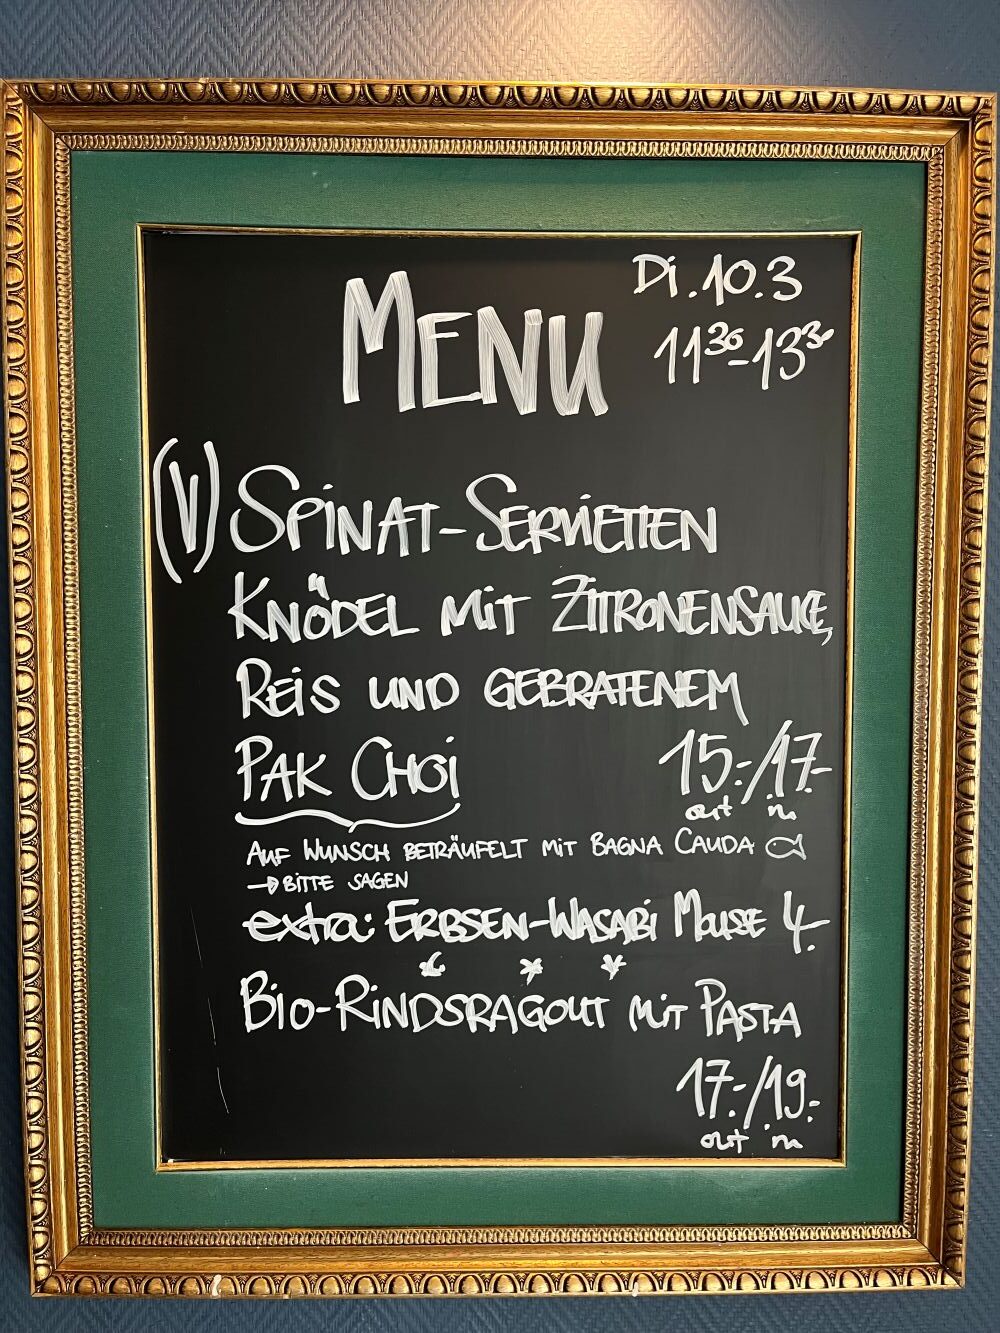 Di. 10.3
MENU
11³⁰-13³⁰
(V) SPINAT-SERVIETTEN
KNÖDEL MIT ZITRONENSAUCE,
REIS UND GEBRATENEM
PAK CHOI 15.-/17.-
out in
AUF WUNSCH BETRÄUFELT MIT BAGNA CAUDA
→ BITTE SAGEN
extra: ERBSEN-WASABI MOUSSE 4.-
* * *
BIO-RINDSRAGOUT MIT PASTA
17.-/19.-
out in